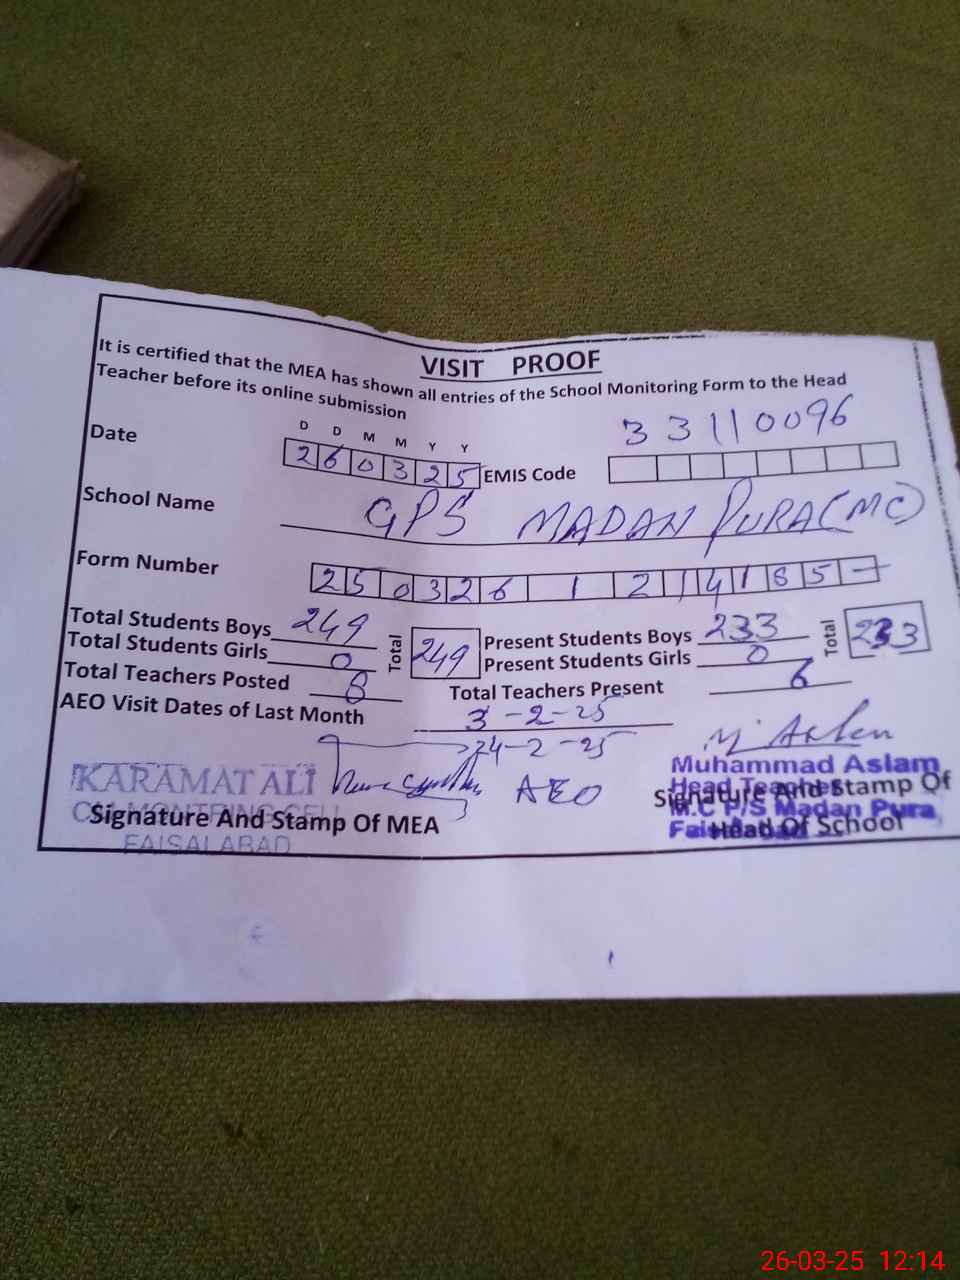 VISIT PROOF
It is certified that the MEA has shown all entries of the School Monitoring Form to the Head
Teacher before its online submission
D D M M Y Y
33110096
Date 260325 EMIS Code
School Name GPS MADAN PURA (MC)
Form Number 250326 1 2 14185-
Total Students Boys 249 Total 249 Present Students Boys 233 Total 233
Total Students Girls 0 Present Students Girls 0
Total Teachers Posted 8 Total Teachers Present 6
AEO Visit Dates of Last Month 3-2-25
24-2-25
AEO
KARAMAT ALI
Signature And Stamp Of MEA
FAISALABAD
M. Aslam
Muhammad Aslam
Head Teacher
Signature And Stamp Of
M.C P/S Madan Pura
Head Of School
26-03-25 12:14